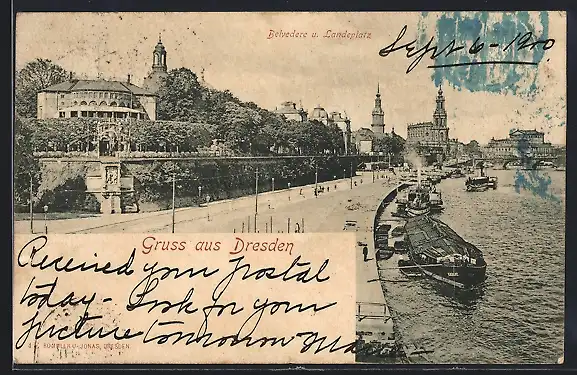 Belvedere u. Landeplatz
Sept 6-1900
Gruss aus Dresden
Received your postal
today - Look for your
picture tomorrow
RÖMMLER & JONAS, DRESDEN.